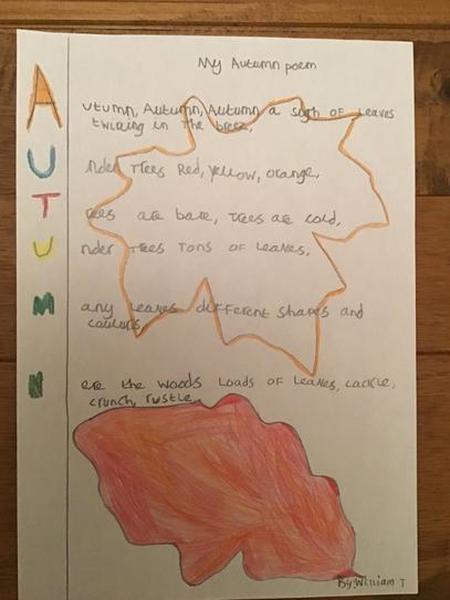 My Autumn poem
Autumn, Autumn, Autumn a sigh of leaves
twiring in the breez,
Under Trees Red, yellow, orange,
Trees are bare, trees are cold,
Under Trees Tons of Leaves,
Many Leaves different shapes and
coulurs,
Nere the woods Loads of Leaves, cackle,
crunch, rustle.
By: William T